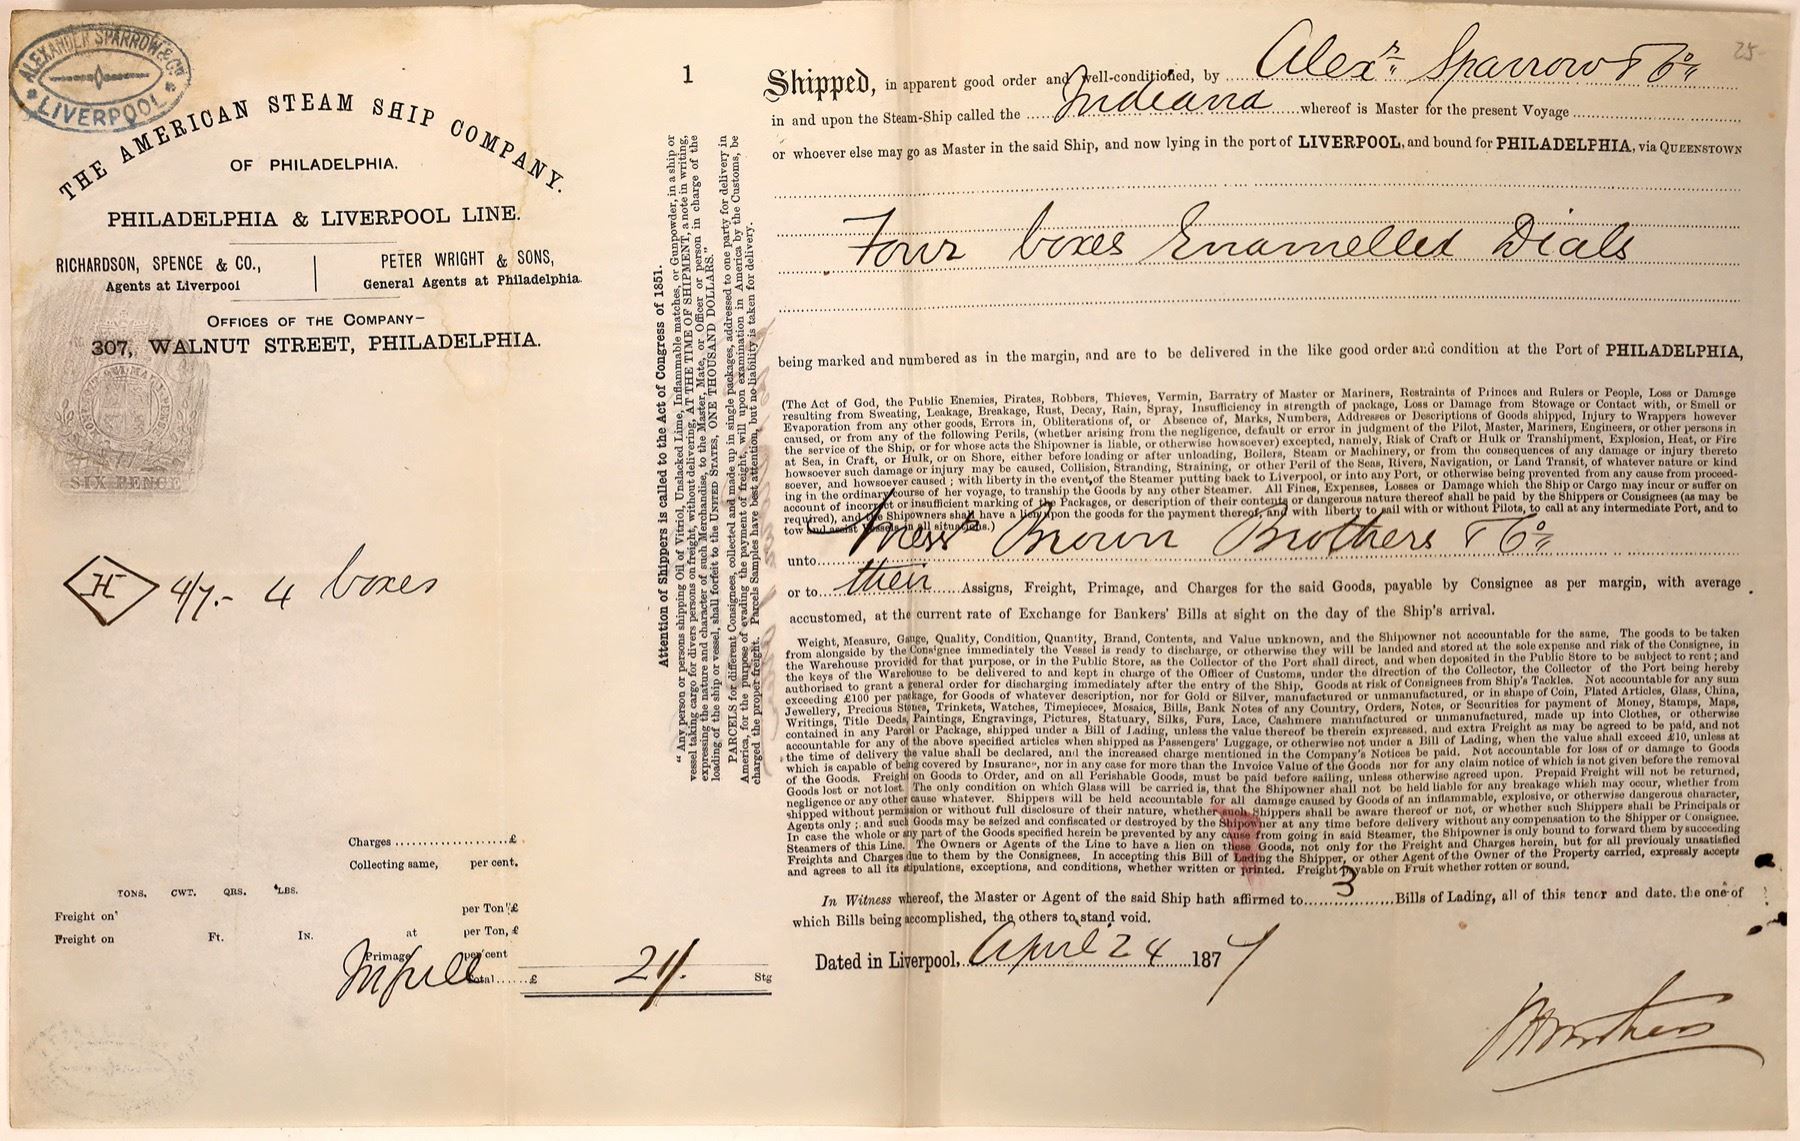 ALEXANDER SPARROW & Co
LIVERPOOL
THE AMERICAN STEAM SHIP COMPANY.
OF PHILADELPHIA.
PHILADELPHIA & LIVERPOOL LINE.
RICHARDSON, SPENCE & CO.,
Agents at Liverpool
PETER WRIGHT & SONS,
General Agents at Philadelphia.
OFFICES OF THE COMPANY—
307, WALNUT STREET, PHILADELPHIA.
SIX PENCE
H 4/7.- 4 boxes
Charges ............£
Collecting same, per cent.
TONS. CWT. QRS. LBS.
Freight on per Ton £
Freight on Ft. IN. at per Ton, £
Primage per cent
Total......£ 21/. Stg
1
Attention of Shippers is called to the Act of Congress of 1851.
"Any person or persons shipping Oil of Vitriol, Unslacked Lime, Inflammable matches, or Gunpowder, in a ship or
vessel taking cargo for divers persons on freight, without delivering, AT THE TIME OF SHIPMENT, a note in writing,
expressing the nature and character of such Merchandise, to the Master, Mate, or Officer or person in charge of the
loading of the ship or vessel, shall forfeit to the UNITED STATES, ONE THOUSAND DOLLARS."
PARCELS for different Consignees, collected and made up in single packages, addressed to one party for delivery in
America, for the purpose of evading the payment of freight, will upon examination in America by the Customs, be
charged the proper freight. Parcels Samples have best attention, but no liability is taken for delivery.
25
Shipped, in apparent good order and well-conditioned, by Alexr Sparrow & Co
in and upon the Steam-Ship called the Indiana whereof is Master for the present Voyage
or whoever else may go as Master in the said Ship, and now lying in the port of LIVERPOOL, and bound for PHILADELPHIA, via QUEENSTOWN
Four boxes Enamelled Dials
being marked and numbered as in the margin, and are to be delivered in the like good order and condition at the Port of PHILADELPHIA,
(The Act of God, the Public Enemies, Pirates, Robbers, Thieves, Vermin, Barratry of Master or Mariners, Restraints of Princes and Rulers or People, Loss or Damage
resulting from Sweating, Leakage, Breakage, Rust, Decay, Rain, Spray, Insufficiency in strength of package, Loss or Damage from Stowage or Contact with, or Smell or
Evaporation from any other goods, Errors in, Obliterations of, or Absence of, Marks, Numbers, Addresses or Descriptions of Goods shipped, Injury to Wrappers however
caused, or from any of the following Perils, (whether arising from the negligence, default or error in judgment of the Pilot, Master, Mariners, Engineers, or other persons in
the service of the Ship, or for whose acts the Shipowner is liable, or otherwise howsoever) excepted, namely, Risk of Craft or Hulk or Transhipment, Explosion, Heat, or Fire
at Sea, in Craft, or Hulk, or on Shore, either before loading or after unloading, Boilers, Steam or Machinery, or from the consequences of any damage or injury thereto
howsoever such damage or injury may be caused, Collision, Stranding, Straining, or other Peril of the Seas, Rivers, Navigation, or Land Transit, of whatever nature or kind
soever, and howsoever caused; with liberty in the event of the Steamer putting back to Liverpool, or into any Port, or otherwise being prevented from any cause from proceed-
ing in the ordinary course of her voyage, to tranship the Goods by any other Steamer. All Fines, Expenses, Losses or Damage which the Ship or Cargo may incur or suffer on
account of incorrect or insufficient marking of the Packages, or description of their contents or dangerous nature thereof shall be paid by the Shippers or Consignees (as may be
required), and the Shipowners shall have a lien upon the goods for the payment thereof, and with liberty to sail with or without Pilots, to call at any intermediate Port, and to
tow and assist Vessels in all situations.)
unto Messrs Brown Brothers & Co
or to their Assigns, Freight, Primage, and Charges for the said Goods, payable by Consignee as per margin, with average
accustomed, at the current rate of Exchange for Bankers' Bills at sight on the day of the Ship's arrival.
Weight, Measure, Gauge, Quality, Condition, Quantity, Brand, Contents, and Value unknown, and the Shipowner not accountable for the same. The goods to be taken
from alongside by the Consignee immediately the Vessel is ready to discharge, or otherwise they will be landed and stored at the sole expense and risk of the Consignee, in
the Warehouse provided for that purpose, or in the Public Store, as the Collector of the Port shall direct, and when deposited in the Public Store to be subject to rent; and
the keys of the Warehouse to be delivered to and kept in charge of the Officer of Customs, under the direction of the Collector, the Collector of the Port being hereby
authorised to grant a general order for discharging immediately after the entry of the Ship. Goods at risk of Consignees from Ship's Tackles. Not accountable for any sum
exceeding £100 per package, for Goods of whatever description, nor for Gold or Silver, manufactured or unmanufactured, or in shape of Coin, Plated Articles, Glass, China,
Jewellery, Precious Stones, Trinkets, Watches, Timepieces, Mosaics, Bills, Bank Notes of any Country, Orders, Notes, or Securities for payment of Money, Stamps, Maps,
Writings, Title Deeds, Paintings, Engravings, Pictures, Statuary, Silks, Furs, Lace, Cashmere manufactured or unmanufactured, made up into Clothes, or otherwise
contained in any Parcel or Package, shipped under a Bill of Lading, unless the value thereof be therein expressed, and extra Freight as may be agreed to be paid, and not
accountable for any of the above specified articles when shipped as Passengers' Luggage, or otherwise not under a Bill of Lading, when the value shall exceed £10, unless at
the time of delivery the value shall be declared, and the increased charge mentioned in the Company's Notices be paid. Not accountable for loss of or damage to Goods
which is capable of being covered by Insurance, nor in any case for more than the Invoice Value of the Goods nor for any claim notice of which is not given before the removal
of the Goods. Freight on Goods to Order, and on all Perishable Goods, must be paid before sailing, unless otherwise agreed upon. Prepaid Freight will not be returned,
Goods lost or not lost. The only condition on which Glass will be carried is, that the Shipowner shall not be held liable for any breakage which may occur, whether from
negligence or any other cause whatever. Shippers will be held accountable for all damage caused by Goods of an inflammable, explosive, or otherwise dangerous character,
shipped without permission or without full disclosure of their nature, whether such Shippers shall be aware thereof or not, or whether such Shippers shall be Principals or
Agents only; and such Goods may be seized and confiscated or destroyed by the Shipowner at any time before delivery without any compensation to the Shipper or Consignee.
In case the whole or any part of the Goods specified herein be prevented by any cause from going in said Steamer, the Shipowner is only bound to forward them by succeeding
Steamers of this Line. The Owners or Agents of the Line to have a lien on these Goods, not only for the Freight and Charges herein, but for all previously unsatisfied
Freights and Charges due to them by the Consignees. In accepting this Bill of Lading the Shipper, or other Agent of the Owner of the Property carried, expressly accepts
and agrees to all its stipulations, exceptions, and conditions, whether written or printed. Freight payable on Fruit whether rotten or sound.
In Witness whereof, the Master or Agent of the said Ship hath affirmed to 3 Bills of Lading, all of this tenor and date, the one of
which Bills being accomplished, the others to stand void.
Dated in Liverpool, April 24 1877